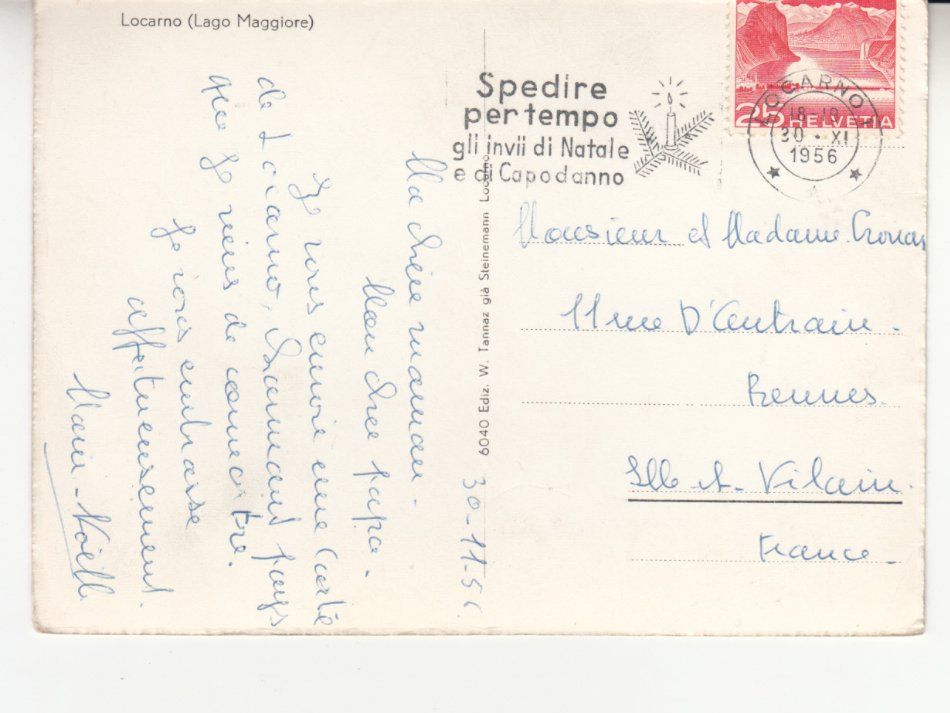 Locarno (Lago Maggiore)
Spedire
per tempo
gli invii di Natale
e di Capodanno
LOCARNO 1
18-19
30 • XI
1956
25 HELVETIA
6040 Ediz. W. Tannaz già Steinemann Locarno
30-11-56
Ma chère maman -
Mon cher papa -
Je vous envoie une carte
de Locarno, charmant pays
que je viens de connaître.
Je vous embrasse
affectueusement.
Marie-Noëlle
Monsieur et Madame
11 rue D'Antrain -
Rennes.
Ille et - Vilaine.
France -